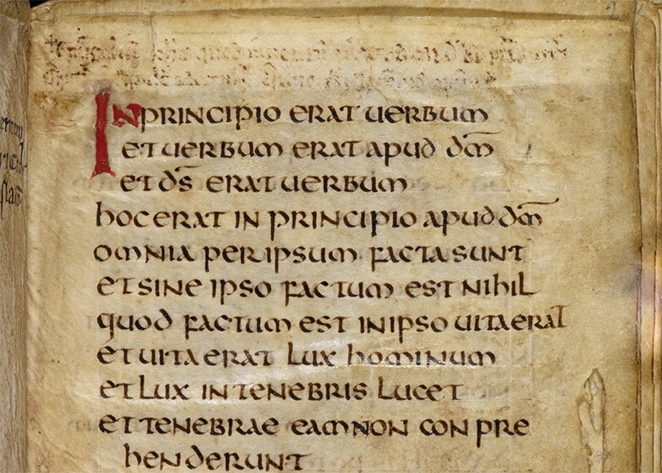 IN PRINCIPIO ERAT UERBUM
ET UERBUM ERAT APUD DM̅
ET DS̅ ERAT UERBUM
hOC ERAT IN PRINCIPIO APUD DM̅
OMNIA PER IPSUM FACTA SUNT
ET SINE IPSO FACTUM EST NIhIL
QUOD FACTUM EST IN IPSO UITA ERAT
ET UITA ERAT LUX hOMINUM
ET LUX IN TENEBRIS LUCET
ET TENEBRAE EAM NON CON PRE
hENDERUNT